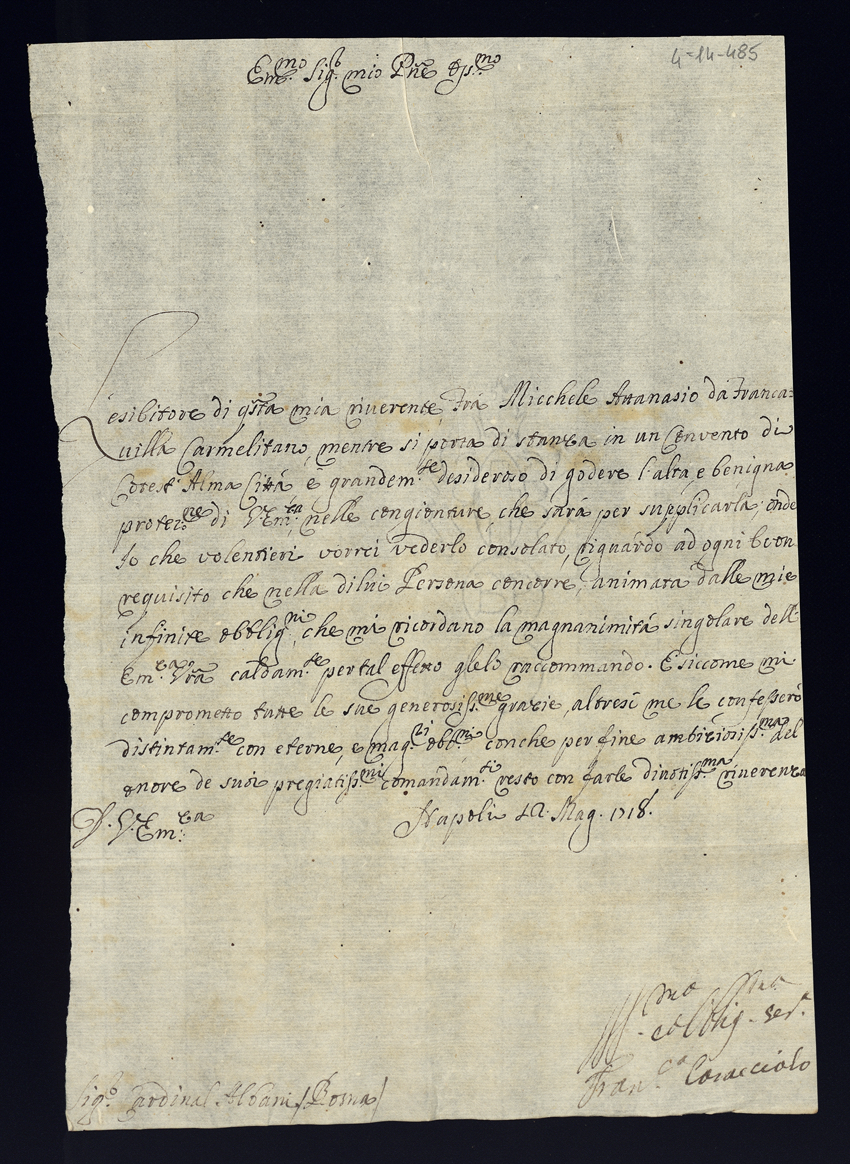 4-14-485
Em.mo Sig.r mio Pñe Oss.mo
L'esibitore di q̃sta mia riverente, Frà Micchele Attanasio da Franca=
villa Carmelitano, mentre si porta di stanza in un Convento di
Cotest'Alma Città è grandem.te desideroso di godere l'alta e benigna
protez.ne di V.Em.za, nelle congionture, che sarà per supplicarla; onde
Io che volentieri vorrei vederlo consolato, riguardo ad ogni buon
requisito che nella dilui Persona concorre, animata dalle mie
infinite obblig.ni, che mi ricordano la magnanimità singolare dell'
Em.za Vrã caldam.te per tal effetto glelo raccommando. E siccome mi
comprometto tutte le sue generosiss.me grazie, altresì me le confesserò
distintam.te con eterne, e mag.ri obb.ni conche per fine ambizioniss.ma del
onore de suoi pregiatiss.mi comandam.ti resto con farle divotiss.ma riverenza
D. V. Em.za
Napoli 12. Mag. 1718.
ma ma
obblig. ser.a
Fran.ca Caracciolo
Sig.r Cardinal Albani /Roma/